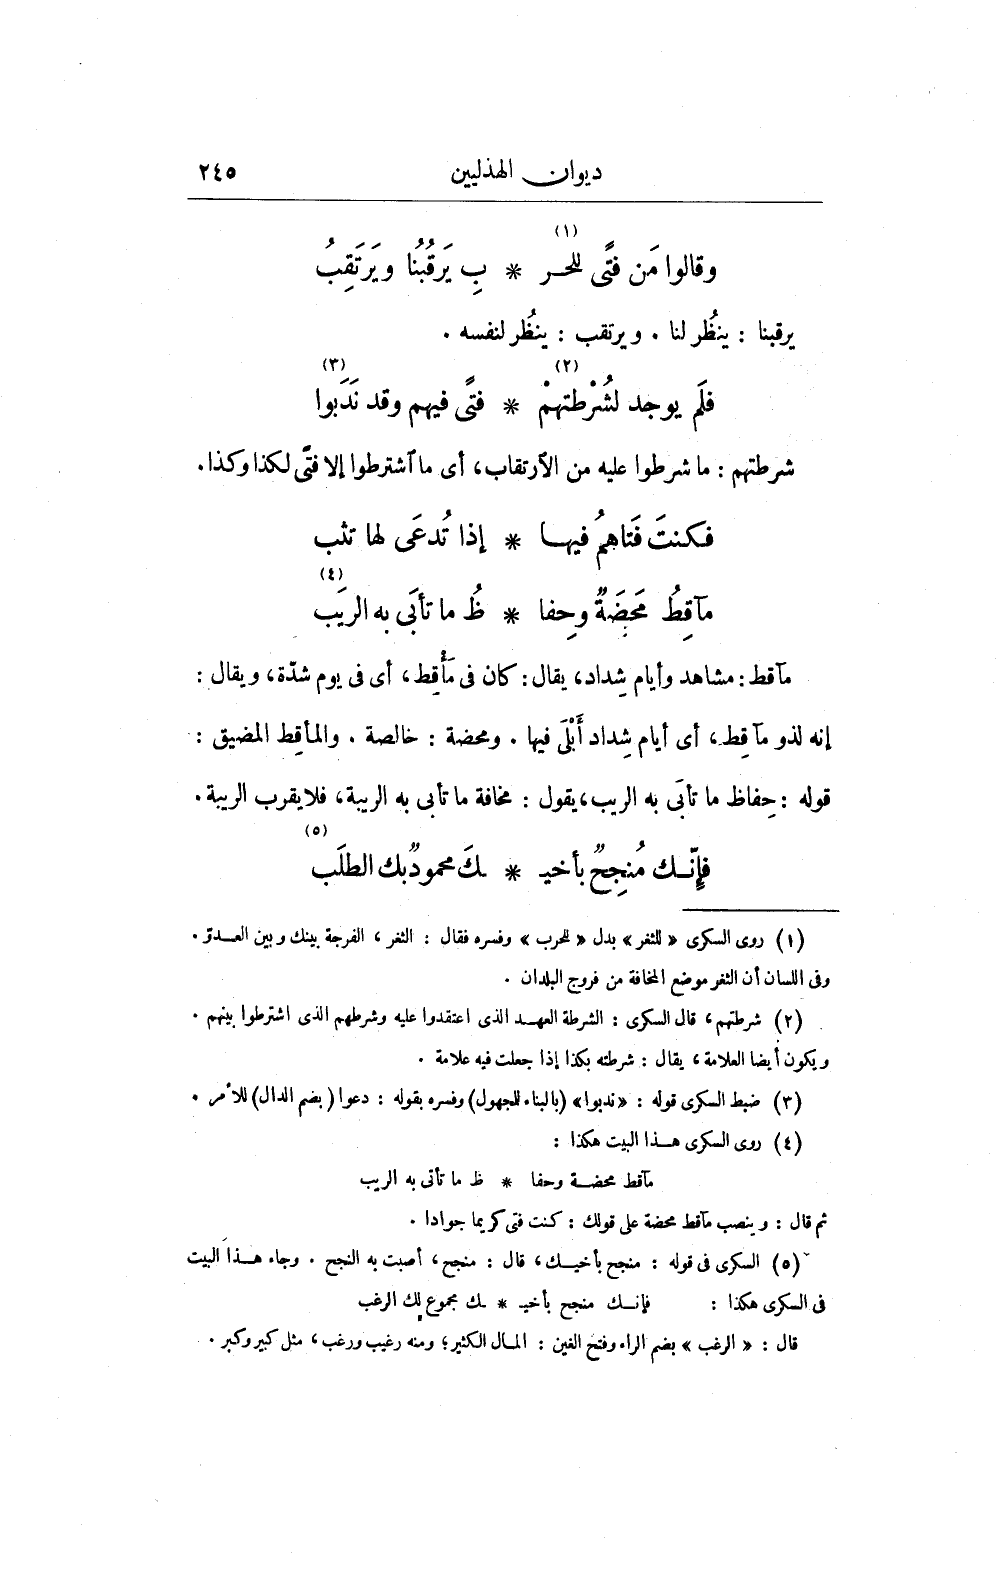 ديوان الهذليين ٢٤٥
(١)
وقالوا مَن فتًى للحر * بِ يَرقُبُنا ويَرتَقِبُ
يرقبنا : ينظُر لنا . ويرتقب : ينظُر لنفسه .
(٢) (٣)
فلَم يوجد لشُرْطتهمْ * فتًى فيهم وقد نَدَبوا
شرطتهم : ما شرطوا عليه من الآرتقاب، أى ما آشترطوا إلا فتًى لكذا وكذا .
فكنتَ فَتاهمُ فيها * إذا تُدعَى لها تثب
(٤)
مآقِطُ مَحِضَةٌ وحِفا * ظُ ما تأبَى به الريَب
مآقط : مشاهد وأيام شِداد، يقال : كان فى مَأْقِط، أى فى يوم شدّة، ويقال :
إنه لذو مآقِط، أى أيام شِداد أَبْلَى فيها . ومحضة : خالصة . والمأقِط المضيق :
قوله : حِفاظ ما تأبَى به الريب، يقول : مخافة ما تأبى به الريبة، فلا يقرب الريبة .
(٥)
فإنّك مُنجِحٌ بأخيـ * ـكَ محمودٌ بك الطلَب
(١) روى السكرى « للثغر » بدل « للحرب » وفسره فقال : الثغر ، الفرجة بينك وبين العدو .
وفى اللسان أن الثغر موضع المخافة من فروج البلدان .
(٢) شرطتهم ، قال السكرى : الشرطة العهد الذى اعتقدوا عليه وشرطهم الذى اشترطوا بينهم .
ويكون أيضا العلامة ، يقال : شرطته بكذا إذا جعلت فيه علامة .
(٣) ضبط السكرى قوله : «ندبوا» (بالبناء للجهول) وفسره بقوله : دعوا (بضم الدال) للأمر .
(٤) روى السكرى هذا البيت هكذا :
مآقط محضة وحفا * ظ ما تأتى به الريب
ثم قال : وينصب مآقط محضة على قولك : كنت فتى كريما جوادا .
(٥) السكرى فى قوله : منجح بأخيك ، قال : منجح ، أصبت به النجح . وجاء هذا البيت
فى السكرى هكذا : فإنك منجح بأخيـ * ـك مجموع لك الرغب
قال : « الرغب » بضم الراء وفتح الغين : المال الكثير ؛ ومنه رغيب ورغب ، مثل كبير وكبر .